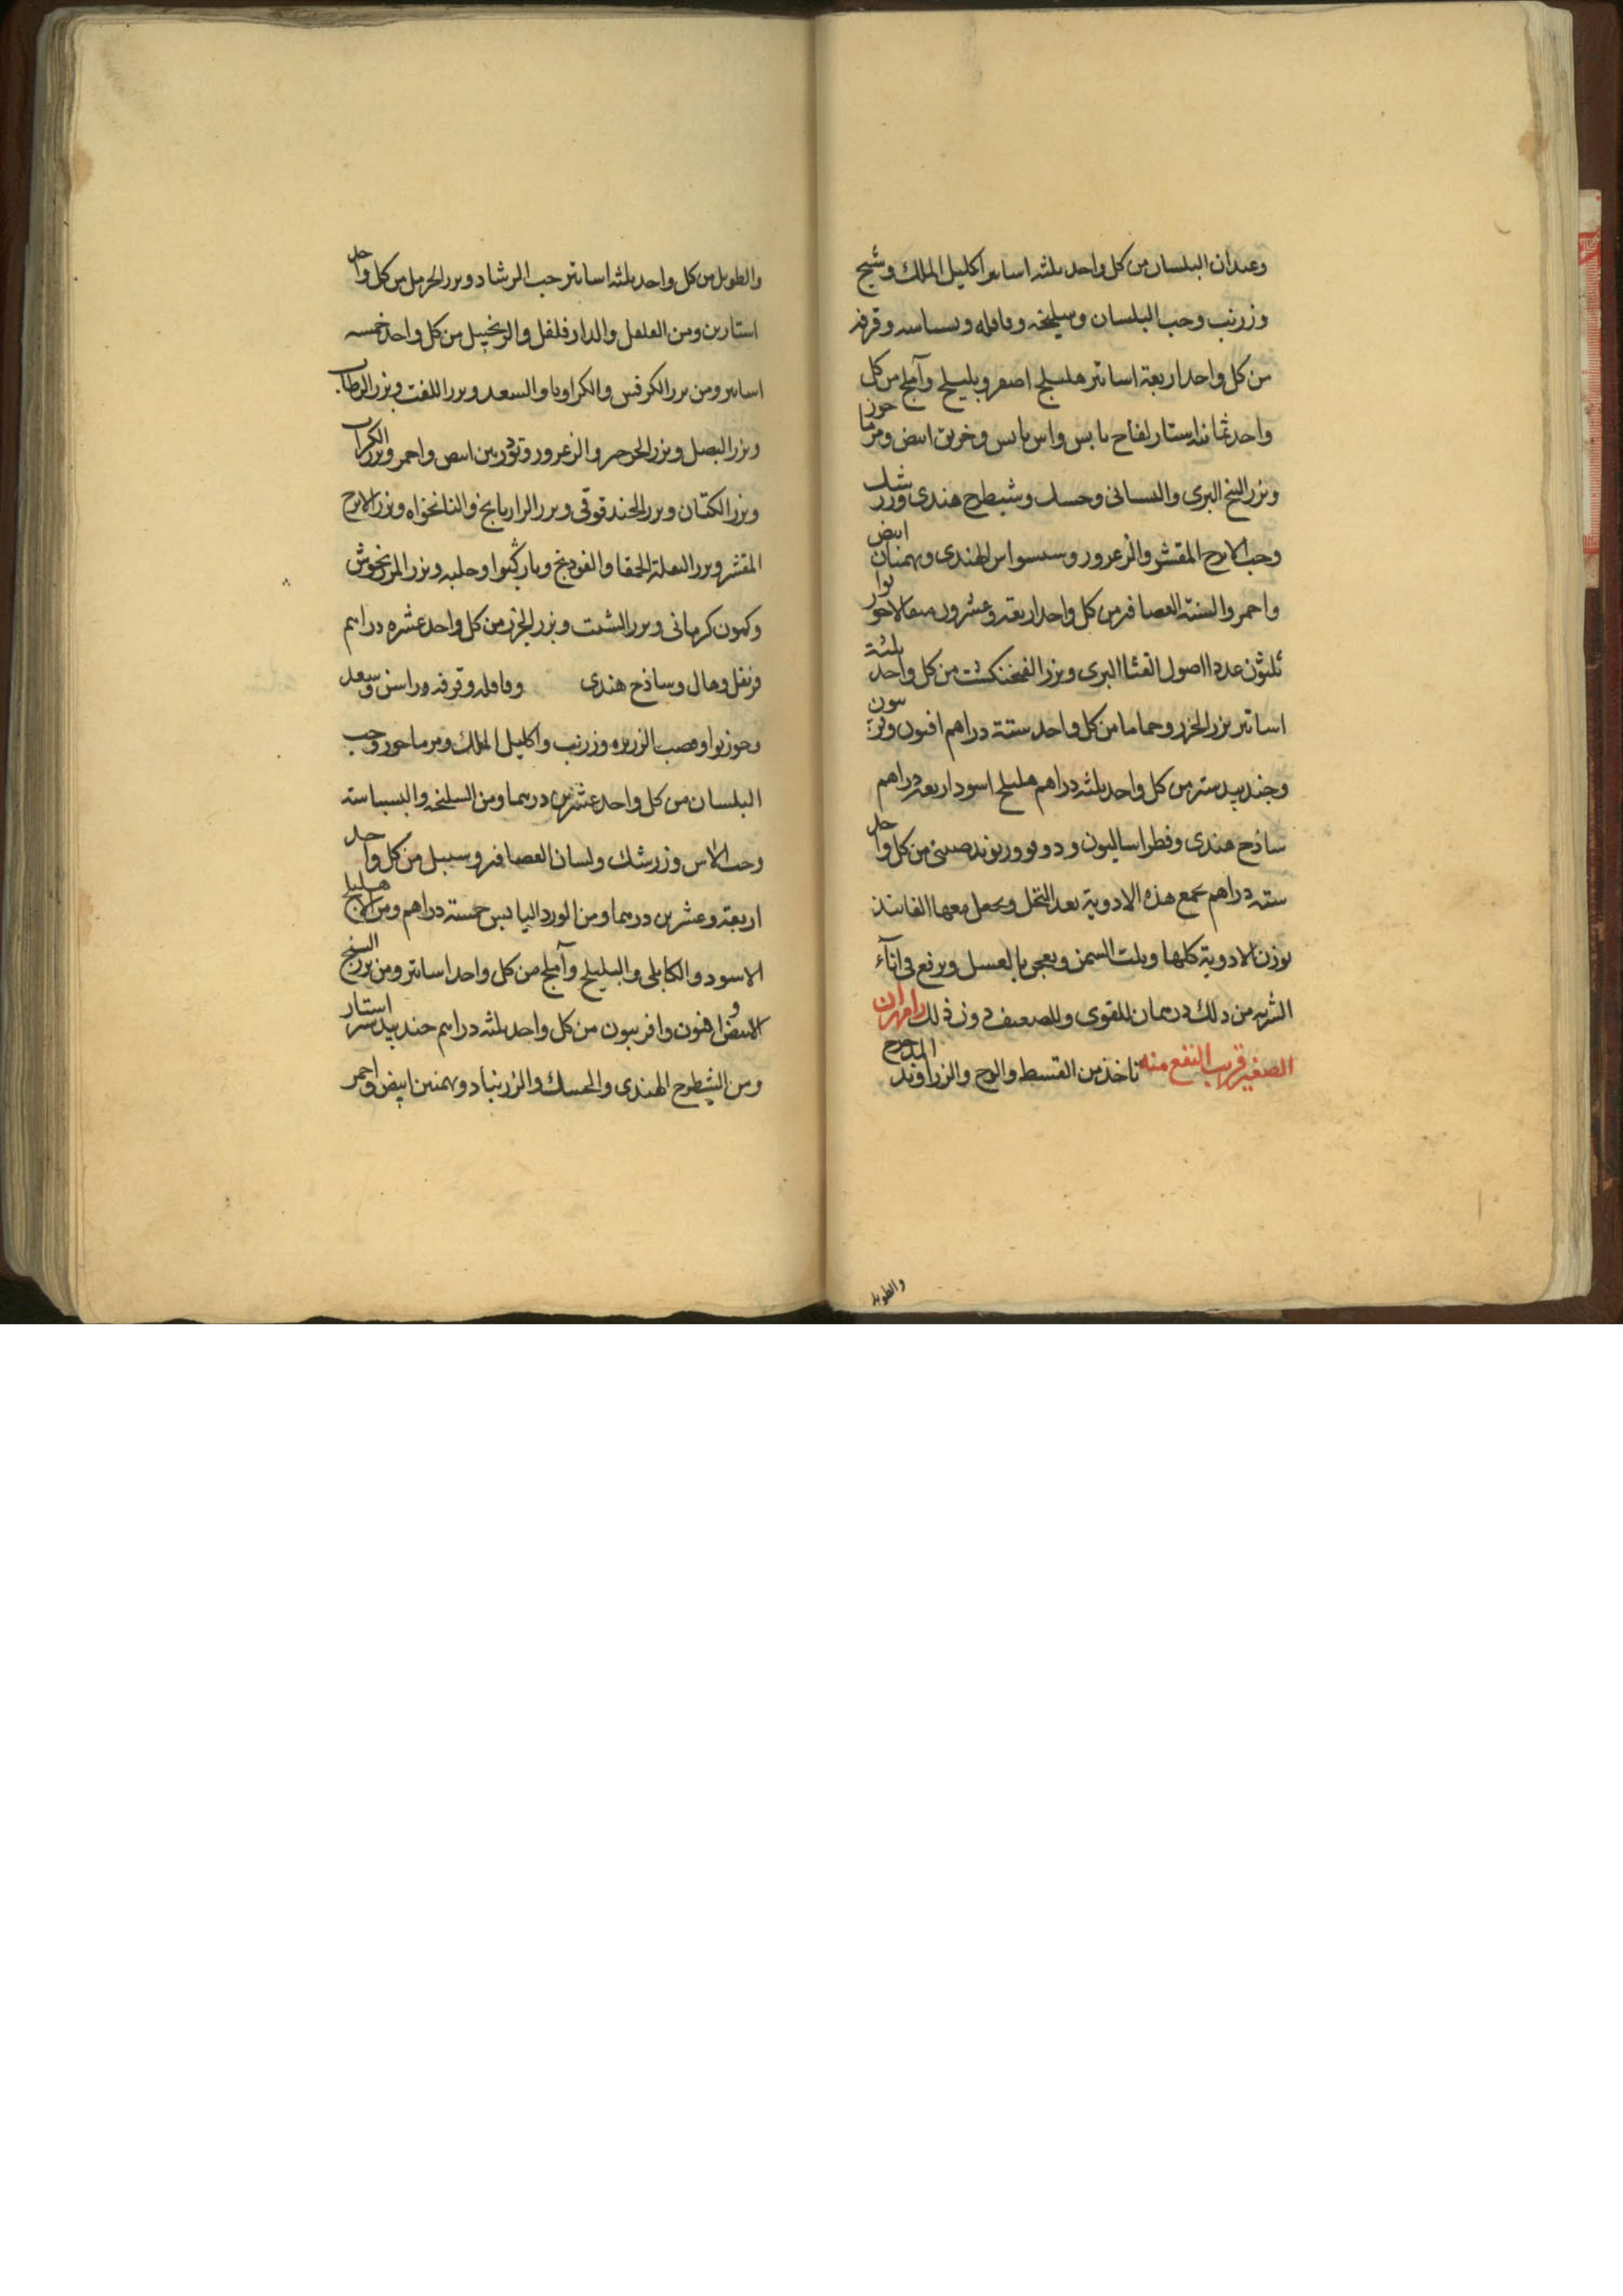 وعيدان البلسان من كل واحد ثلثه اساتير اكليل الملك وشيح
وزرنب وحب البلسان وسليخه وقاقله وبسباسه وقرفه
من كل واحد اربعة اساتير هليلج اصفر وبليلج وآملج من كل
واحد ثمانيه استار لفاح يابس واس يابس وخربق ابيض ومرماحوز
وبزر البنج البرى والبستانى وحسك وشيطرج هندى وزرشك
وحب الاترج المقشر والزعرور وسيسواس الهندى وبهمنان ابيض
واحمر والسنة العصافير من كل واحد اربعة وعشرون مثقالا جوز بوا
ثلثون عددا اصول القثا البرى وبزر الفنجنكشت من كل واحد ثلثة
اساتير بزر الجزر وحماما من كل واحد ستة دراهم افيون وفربيون
وجندبيدستر من كل واحد ثلثه دراهم هليلج اسود اربعة دراهم
ساذج هندى وفطراساليون ودوقو وريوند صينى من كل واحد
سته دراهم يجمع هذه الادوية بعد النخل ويجعل معها الفانيذ
بوزن الادوية كلها ويلت السمن ويعجن بالعسل ويرفع فى انآء
الشربه من ذلك درهمان للقوى وللضعيف دون ذلك رامهران
الصغير قريب النفع منه تاخذ من القسط والوج والزراوند المدحرج
والطويل
والطويل من كل واحد ثلثه اساتير حب الرشاد وبزر الحرمل من كل واحد
استارين ومن الفلفل والدارفلفل والزنجبيل من كل واحد خمسه
اساتير ومن بزر الكرفس والكراويا والسعد وبزر اللفت وبزر الرطاب
وبزر البصل وبزر الجرجير والزعرور وتودريين ابيض واحمر وبزر الكراث
وبزر الكتان وبزر الحندقوقى وبزر الرازيانج والنانخواه وبزر الاترج
المقشر وبزر البقلة الحمقا والفودنج وحلبه وبزر المرزنجوش
وكمون كرمانى وبزر الشبت وبزر الجزر من كل واحد عشره دراهم
قرنفل وهال وساذج هندى وقاقله وقرفه وراسن وسعد
وجوزبوا وقصب الزريره وزرنب واكليل الملك ومرماحوز وحب
البلسان من كل واحد عشرين درهما ومن السليخه والبسباسة
وحب الاس وزرشك ولسان العصافير وسنبل من كل واحد
اربعة وعشرين درهما ومن الورد اليابس خمسة دراهم ومن الاهليلج
الاسود والكابلى والبليلج وآملج من كل واحد اساتير ومن بزر البنج
الابيض وافيون وافربيون من كل واحد ثلثه دراهم جندبيدستر استار
ومن الشيطرج الهندى والحسك والزرنباد وبهمنين ابيض واحمر